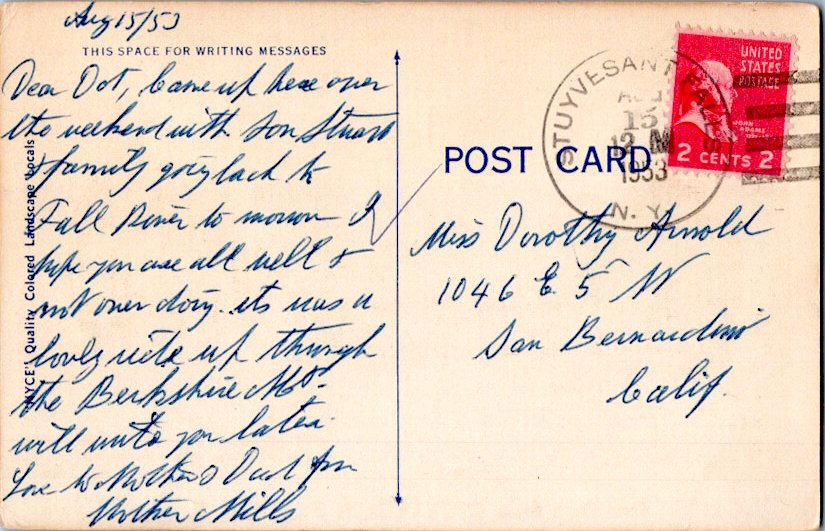 Aug 15/53
THIS SPACE FOR WRITING MESSAGES
Dear Dot, Came up here over
the weekend with son Stuart
& family going back to
Fall River to morrow I
hope you are all well &
not over doing. its was a
lovely ride up through
the Berkshire Mts.
will write you later.
Love to Mother & Dad from
Mother Mills
Quality Colored Landscape Vocals
POST CARD
STUYVESANT FALLS
AUG
15
12 M
1953
N. Y.
UNITED
STATES
POSTAGE
JOHN
ADAMS
2 CENTS 2
Miss Dorothy Arnold
1046 E. 5 St
San Bernardino
Calif.